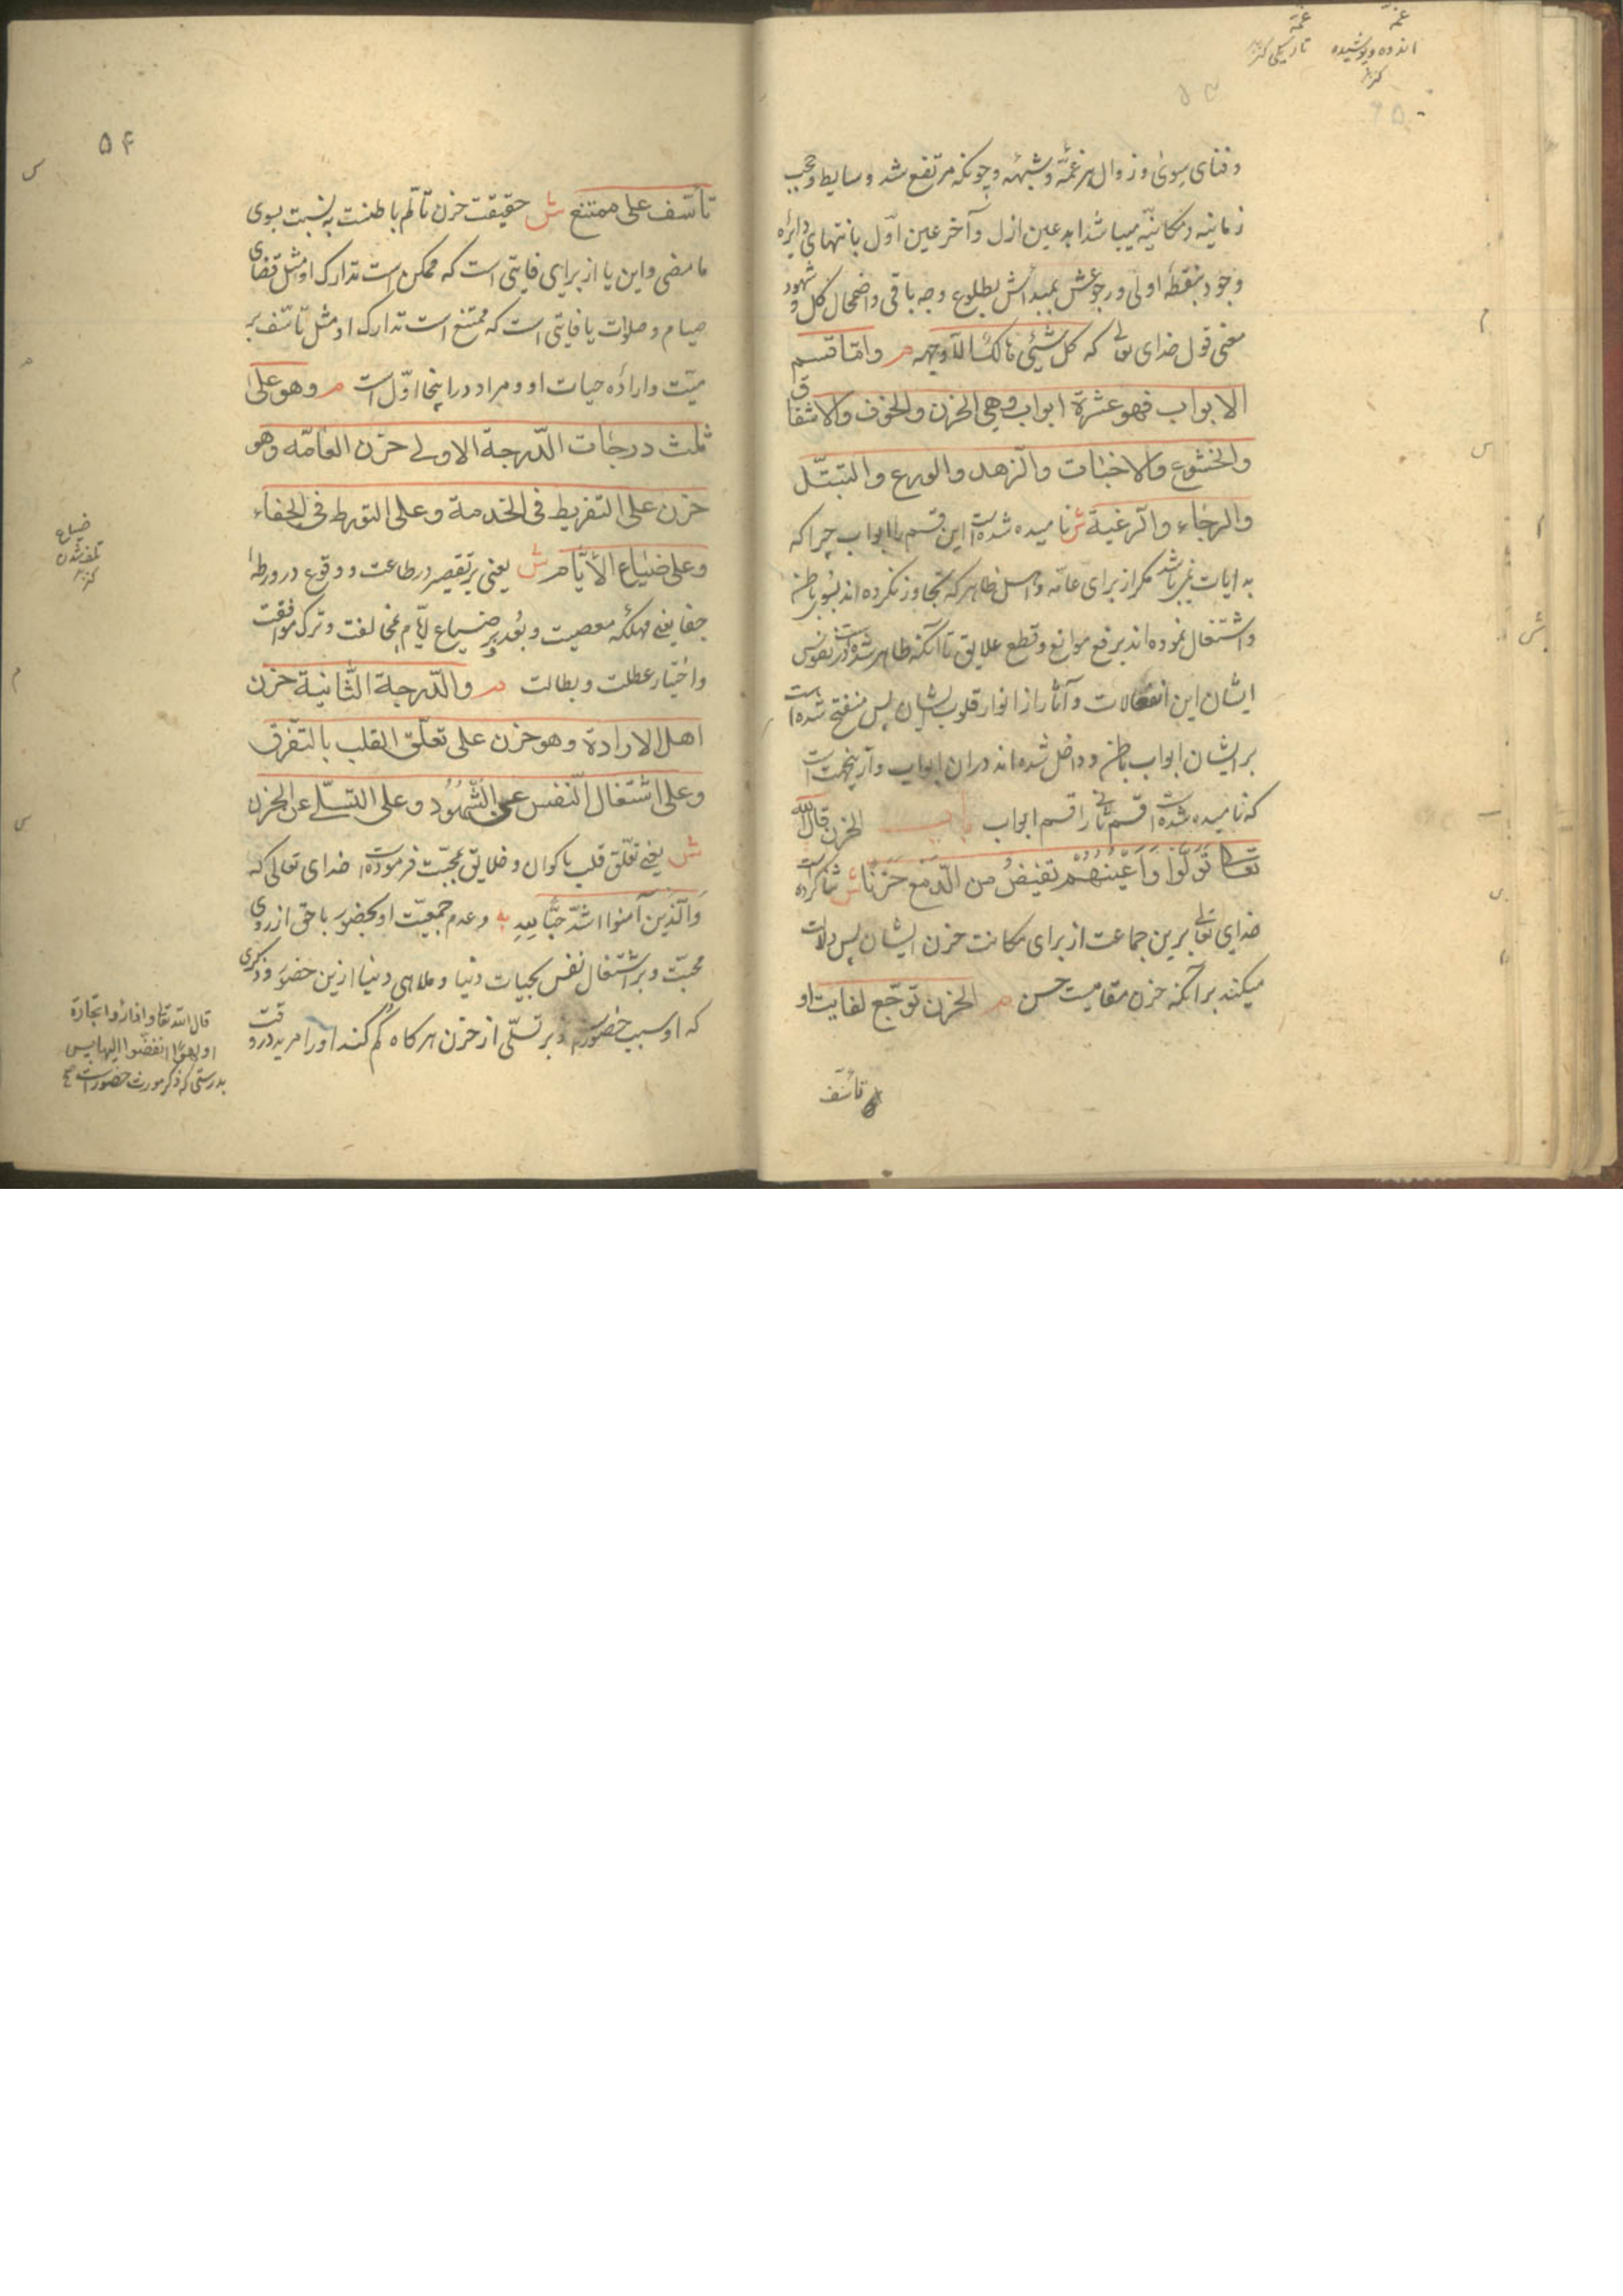 غمّه
اندوه و پوشیده
کنز
غمّه
تاریکی کنز
و فنای سوی و زوال هر غمّه و شبهه و چونکه مرتفع شد وسایط و حجب
زمانیه و مکانیّه میباشد ابد عین ازل و آخر عین اوّل بانتهای دایره
وجود بنقطهٔ اولی و رجوعش بمبدأش بطلوع وجه باقی و اضمحلال کل و شهود
معنی قول خدای تعالی که کل شیئی هالک الّا وجهه م و امّا قسم
الابواب فهو عشرة ابواب وهی الحزن والخوف والاشفاق
والخشوع والاخبات والزهد والورع والتبتّل
والرجاء والرغبة ش نامیده شده است این قسم بابواب چرا که
به ایات نمیباشد مگر از برای عامّه و اهل ظاهر که تجاوز نکرده اند بسوی باطن
و اشتغال نموده اند برفع موانع و قطع علایق تا آنکه ظاهر شده است در نفوس
ایشان این انفعالات و آثار از انوار قلوب ایشان پس منفتح شده است
بر ایشان ابواب باطن و داخل شده اند در ان ابواب و از ینجهت است
که نامیده شده است قسم ثانی را قسم ابواب باب الحزن قال الله
تعالی تَوَلَّوْا وَاَعْیُنُهُمْ تفیضُ من الدّمع حَزَنًا ش ثنا کرده است
خدای تعالی برین جماعت از برای مکانت حزن ایشان پس دلالت
میکند بر آنکه حزن مقامیست حسن م الحزن توجّع لفایت او
تأسّف
۵۴
تأسّف علی ممتنع ش حقیقت حزن تألّم باطنست به نسبت بسوی
ما مضی و این یا از برای فایتی است که ممکن است تدارک او مثل قضای
صیام و صلوات یا فایتی است که ممتنع است تدارک او مثل تأسّف بر
میّت و ارادهٔ حیات او و مراد در اینجا اوّل است م وهو علی
ثلث درجات الدّرجة الاولی حزن العامّه وهو
حزن علی التفریط فی الخدمة وعلی التورط فی الجفاء
وعلی ضیاع الأیّام ش یعنی بر تقصیر در طاعت و وقوع در ورطهٔ
جفا یعنی مهلکهٔ معصیت و بُعد و بر ضیاع ایّام بمخالفت و ترک موافقت
و اختیار عطلت و بطالت م والدّرجة الثّانیة حزن
اهل الارادة وهو حزن علی تعلّق القلب بالتفرّق
وعلی اشتغال النّفس عن الشّهُوُد وعلی التسلّی عن الحزن
ش یعنی تعلّق قلب باکوان و خلایق بمحبّت فرموده است خدای تعالی که
وَالّذین آمنوا اشدّ حبًّا للهِ و عدم جمعیّت او بحضور با حق از روی
محبّت و بر اشتغال نفس بحبّیات دنیا و ملاهی دنیا ازین حضور و ذکری
که او سبب حضورست و بر تسلّی از حزن هر کاه گم کند او را مرید در وقت
ضیاع
تلف شدن
کنز
قال الله تعالی و اذا رأوا تجارة
او لهوًا انفضّوا الیها پس
بدرستی که ذکر مورث حضور است صح